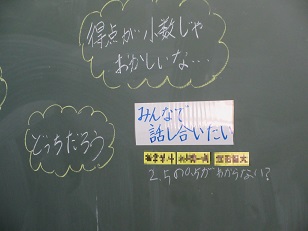 得点が小数じゃ
おかしいな…
どっちだろう
みんなで
話し合いたい
2.5の0.5がわからない？